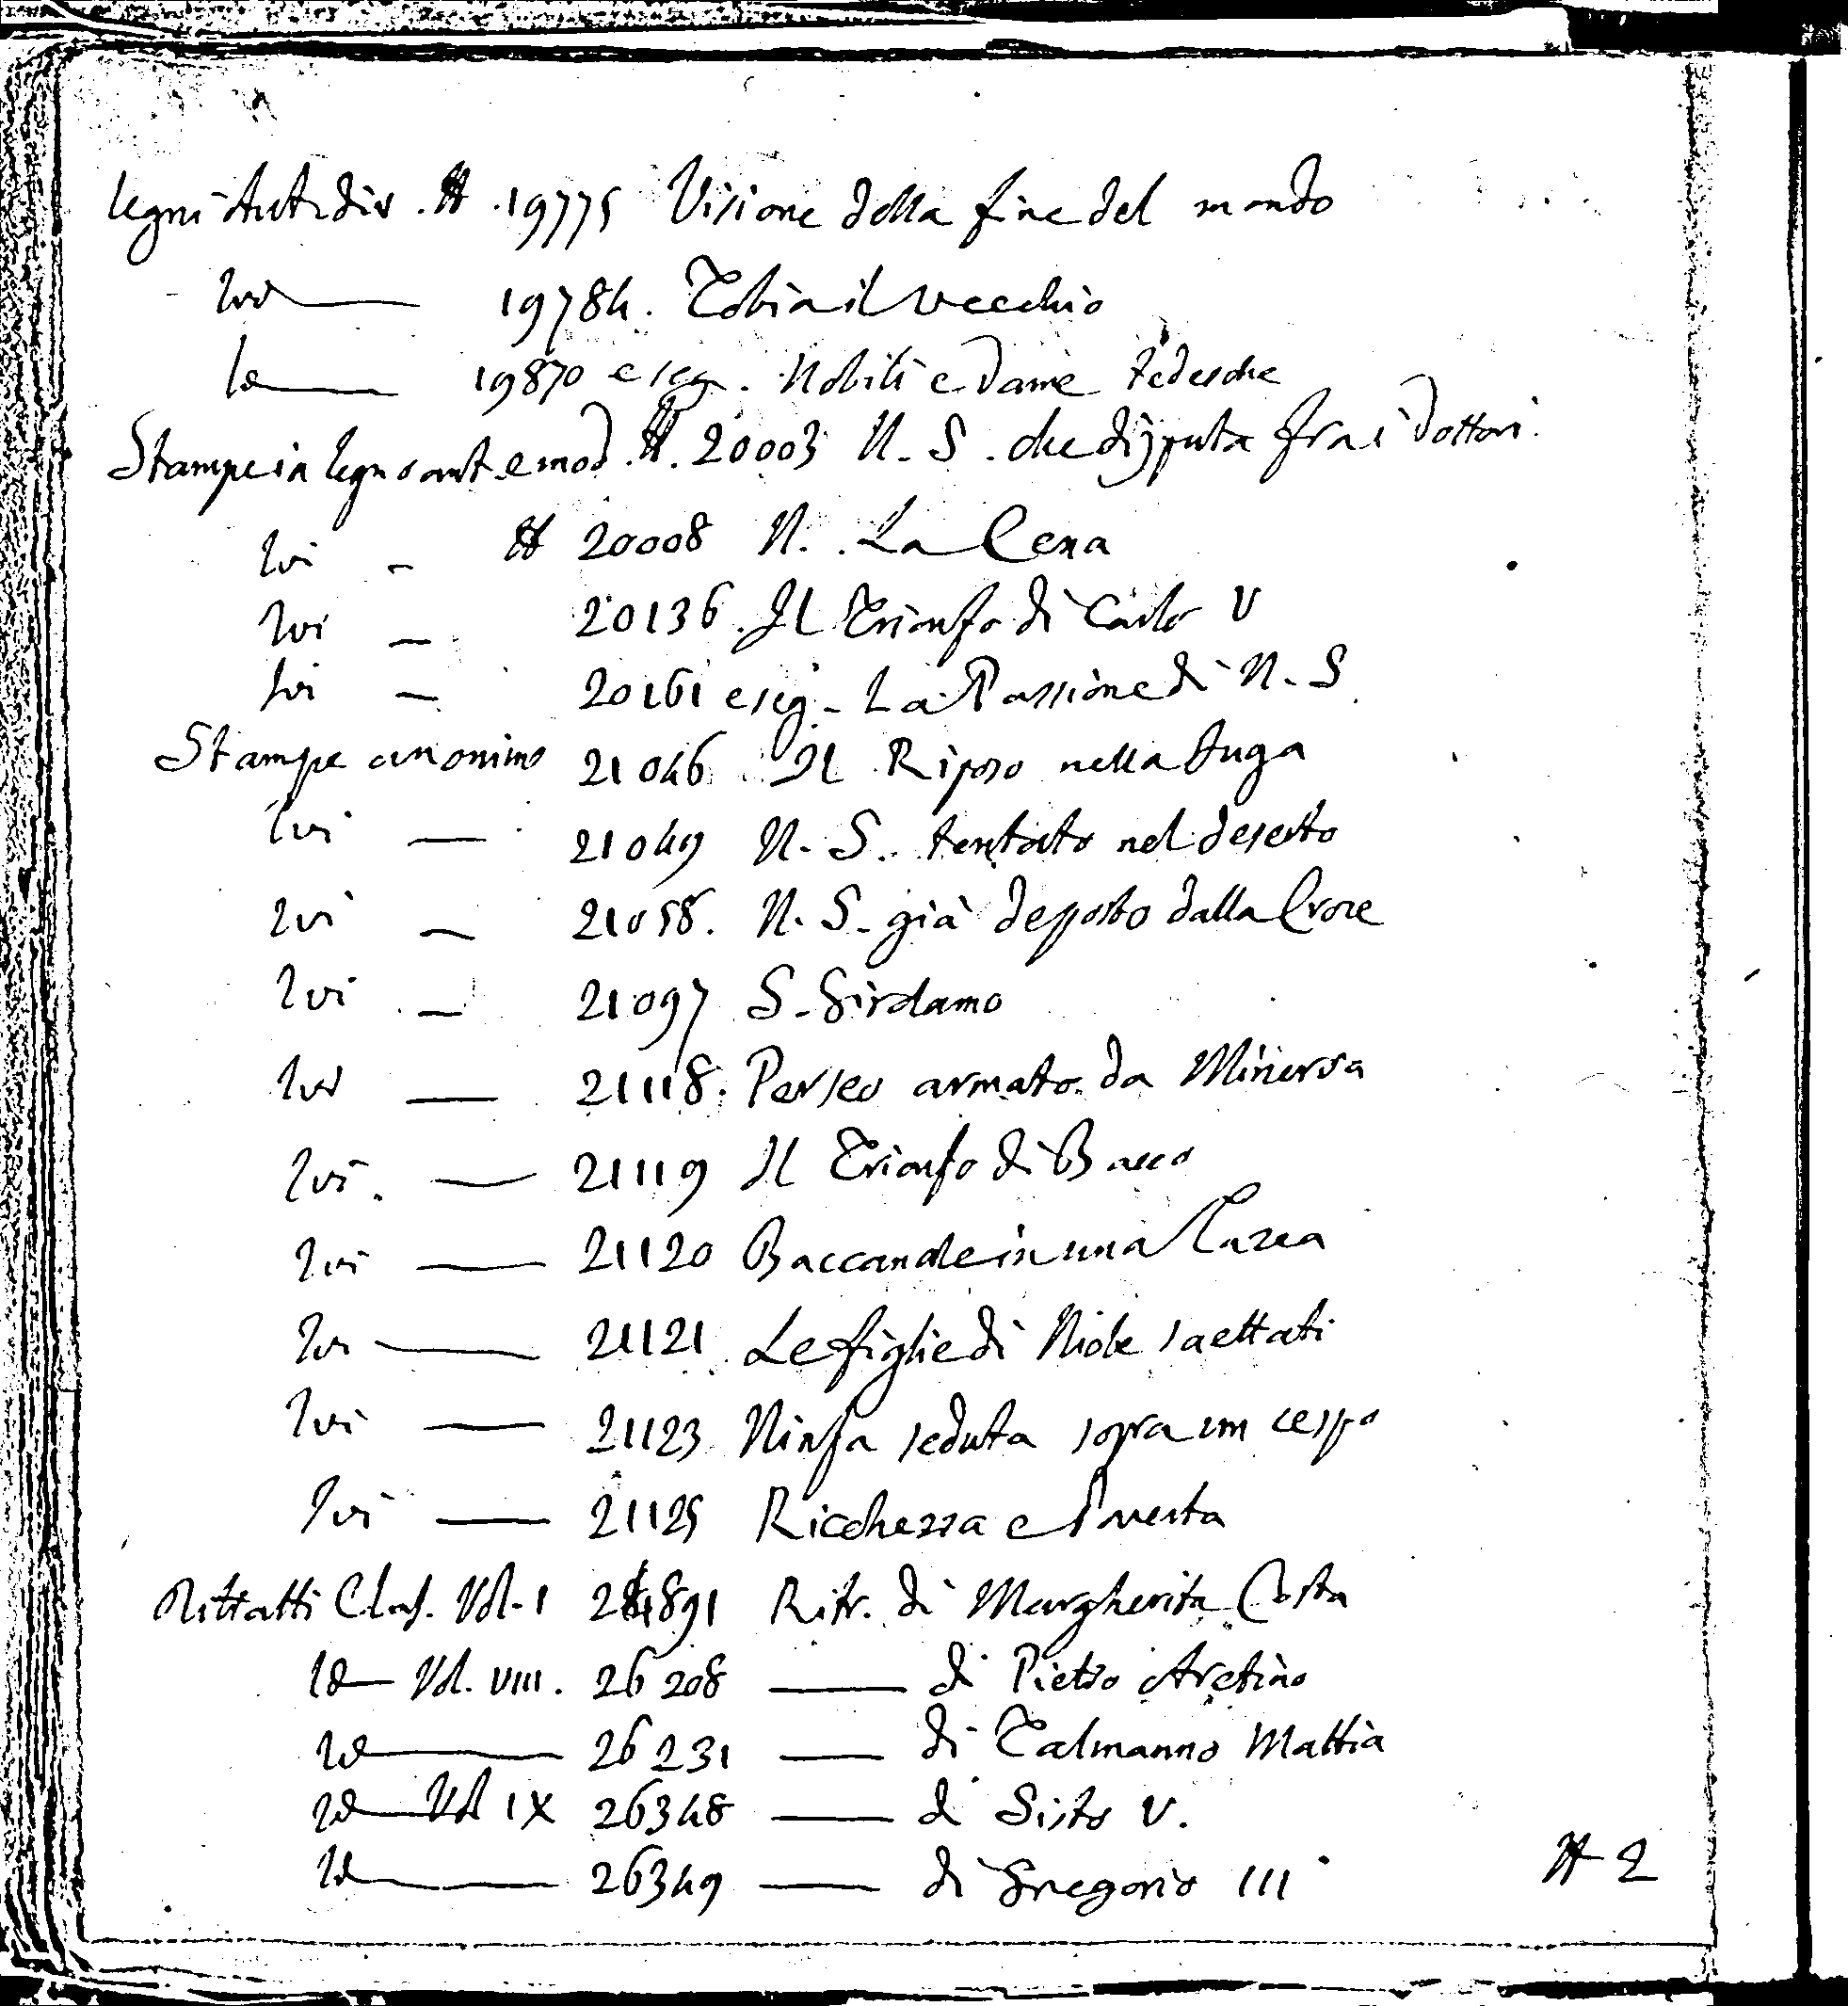 legni Aut. div. # 19775 Visione della fine del mondo
Ivi — 19784. Tobia il vecchio
Id — 19870 e seg. Nobili e Dame tedesche
Stampe in legno ant. e mod. #. 20003 N. S. che disputa fra i Dottori.
Ivi – # 20008 N. La Cena
Ivi – 20136. Il Trionfo di Carlo V
Ivi – 20161 e seg. La Passione di N. S.
Stampe anonimo 21046 Il Riposo nella fuga
Ivi — 21049 N. S. tentato nel deserto
Ivi – 21058. N. S. già deposto dalla Croce
Ivi – 21097 S. Girolamo
Ivi — 21118. Perseo armato da Minerva
Ivi. — 21119 Il Trionfo di Bacco
Ivi — 21120 Baccanale in una Tazza
Ivi — 21121 Le figlie di Niobe saettati
Ivi — 21123 Ninfa seduta sopra un cespo
Ivi — 21125 Ricchezza e Poverta
Ritratti Clas. Vol. I 24891 Ritr. di Margherita Costa
Id — Vol. VIII. 26208 — di Pietro Aretino
Id — 26231 — di Talmanno Mattia
Id — Vol IX 26348 — di Sisto V.
Id — 26349 — di Gregorio III
# 2